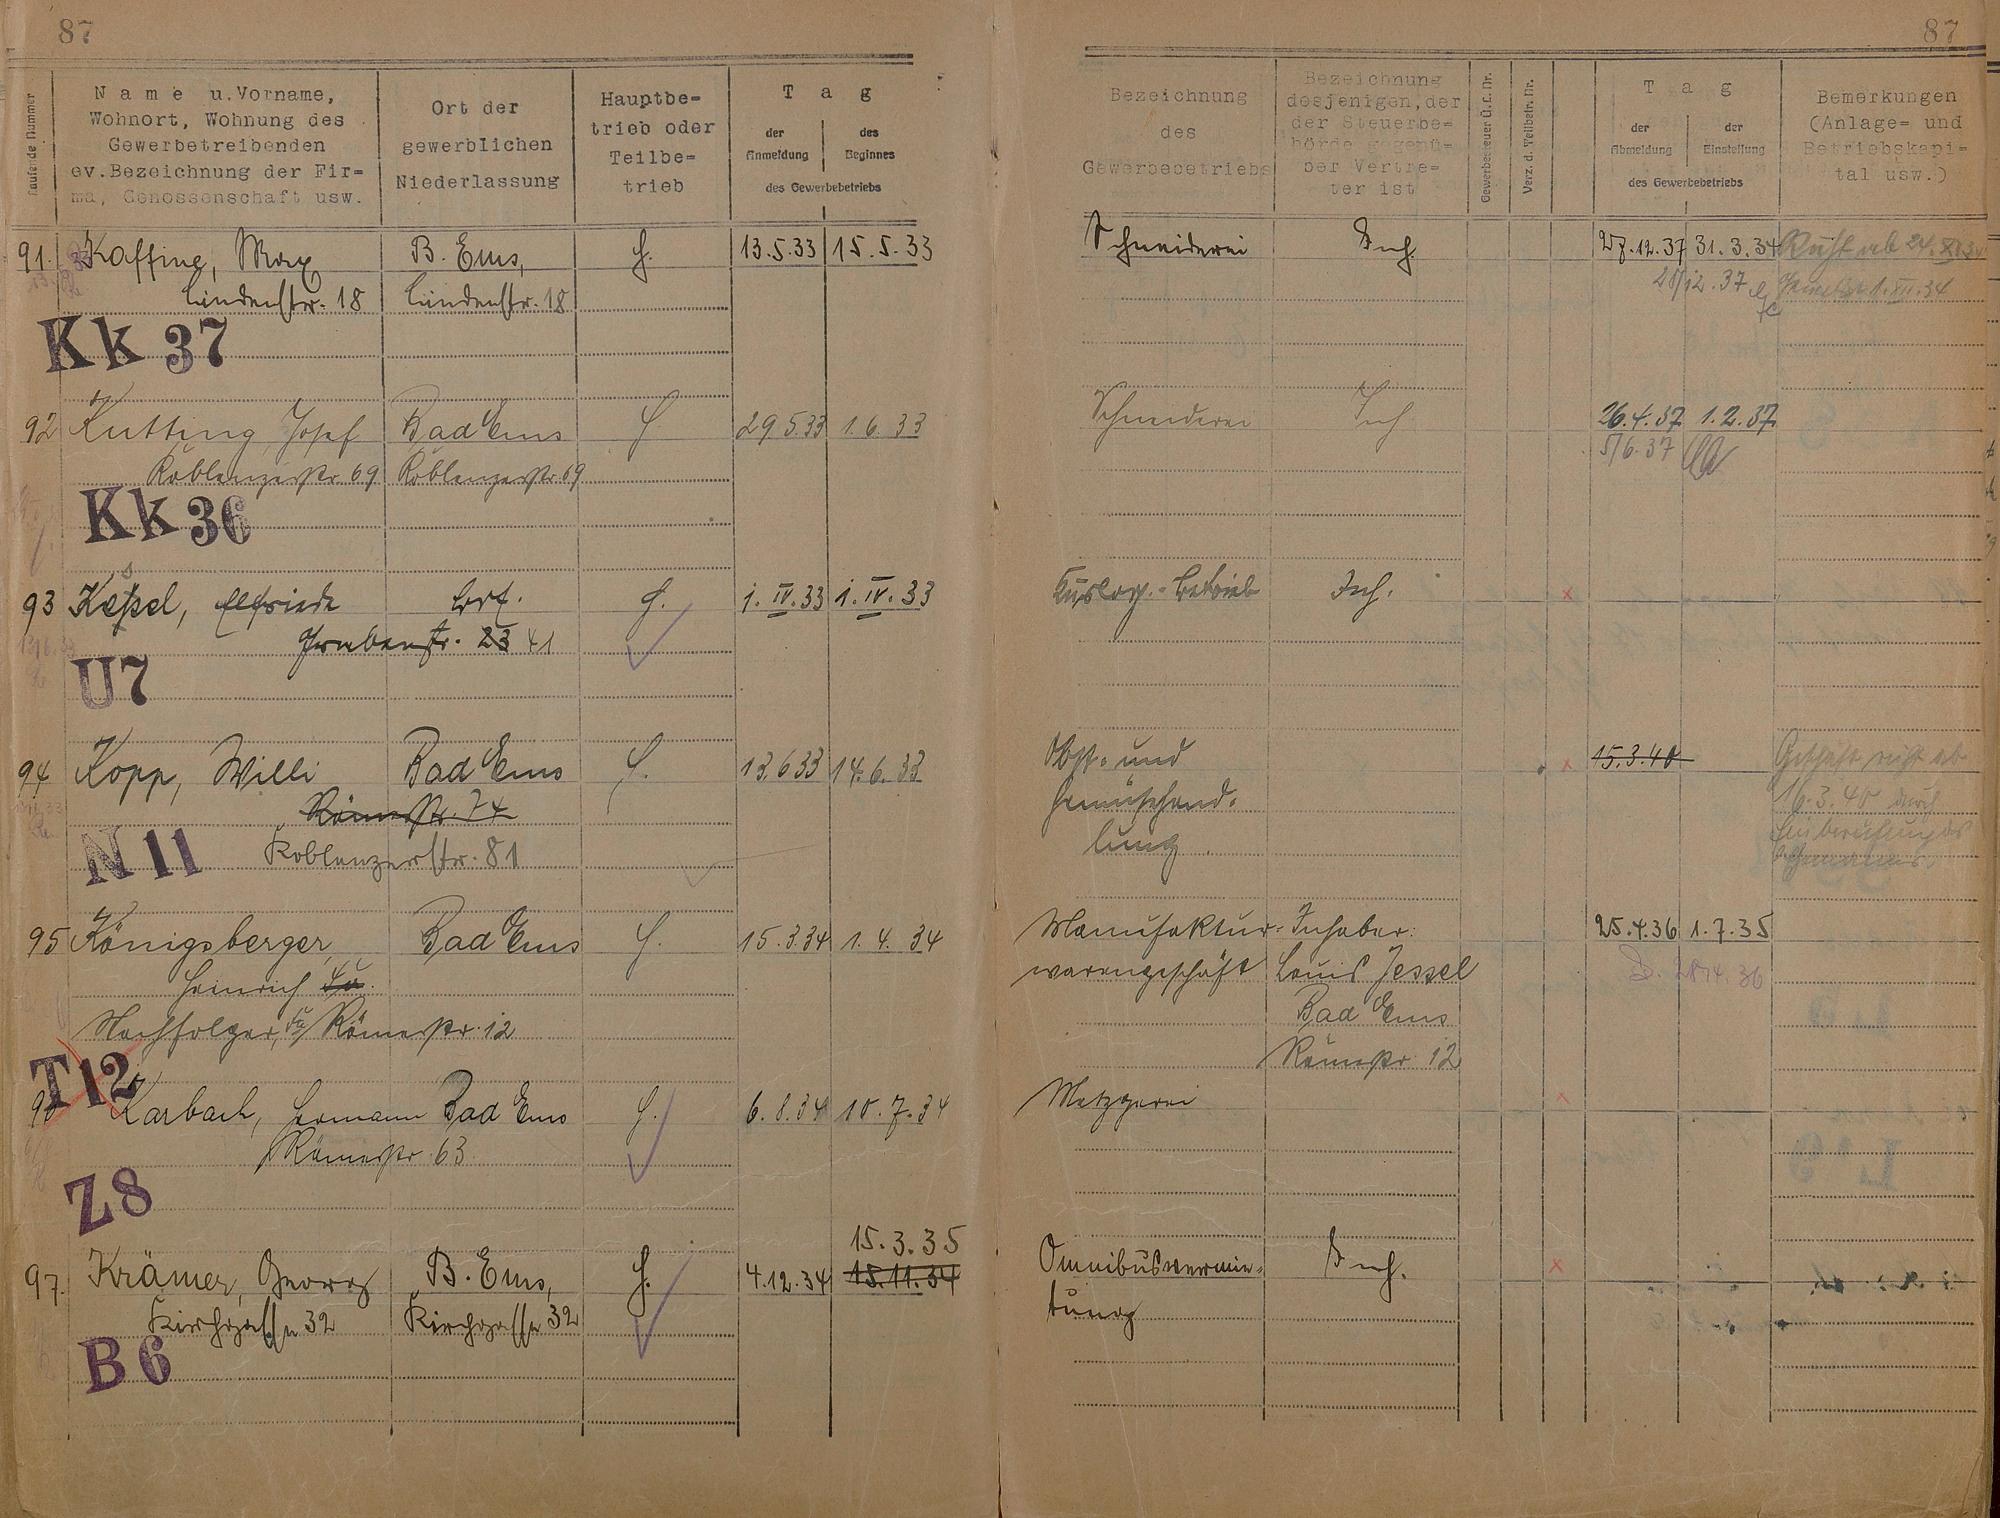 87
87
Laufende Nummer
Name u. Vorname,
Wohnort, Wohnung des
Gewerbetreibenden
ev. Bezeichnung der Fir=
ma, Genossenschaft usw.
Ort der
gewerblichen
Niederlassung
Hauptbe=
trieb oder
Teilbe=
trieb
Tag
der
Anmeldung
des
Beginnes
des Gewerbebetriebs
Bezeichnung
des
Gewerbebetriebs
Bezeichnung
desjenigen, der
der Steuerbe=
hörde gegenü=
ber Vertre=
ter ist
Gewerbesteuer Ü. L. Nr.
Verz. d. Teilbetr. Nr.
Tag
der
Abmeldung
der
Einstellung
des Gewerbebetriebs
Bemerkungen
(Anlage= und
Betriebskapi=
tal usw.)
91. Kaffine, Max B. Ems, H. 13.5.33 15.5.33 Schneiderei Inh. 27.12.37 31.3.34 Ruht ab 24.XI.34
Lindenstr. 18 Lindenstr. 18 28/12.37 1.XII.34
Kk 37
92 Kutting Josef Bad Ems H. 29.5.33 1.6.33 Schneiderei Inh 26.4.37 1.2.37
Koblenzerstr. 69 Koblenzerstr. 69 5/6.37
Kk 36
93 Kessel, Elfriede H. 1.IV.33 1.IV.33 Betrieb Inh.
Grabenstr. 23 41
U7
94 Kopp, Willi Bad Ems H. 13.6.33 14.6.33 Obst- und 15.3.40 Geschäft ruht ab
Römerstr. 74 Gemüsehand- 16.3.40 durch
N11 Koblenzerstr. 81 lung Einberufung des
Ehemannes.
95 Königsberger, Bad Ems H. 15.3.34 1.4.34 Manufaktur- Inhaber: 25.4.36 1.7.35
Heinrich Fa. warengeschäft Louis Jessel 28.4.36
Nachfolger, Fa. Römerstr. 12 Bad Ems
T12 Römerstr. 12
96 Karbach, Hermann Bad Ems H. 6.8.34 10.7.34 Metzgerei
Römerstr. 63
Z8
15.3.35
97. Krämer, Georg B. Ems, H. 4.12.34 15.11.34 Omnibusvermie- Inh.
Kirchgasse 32 Kirchgasse 32 tung
B6